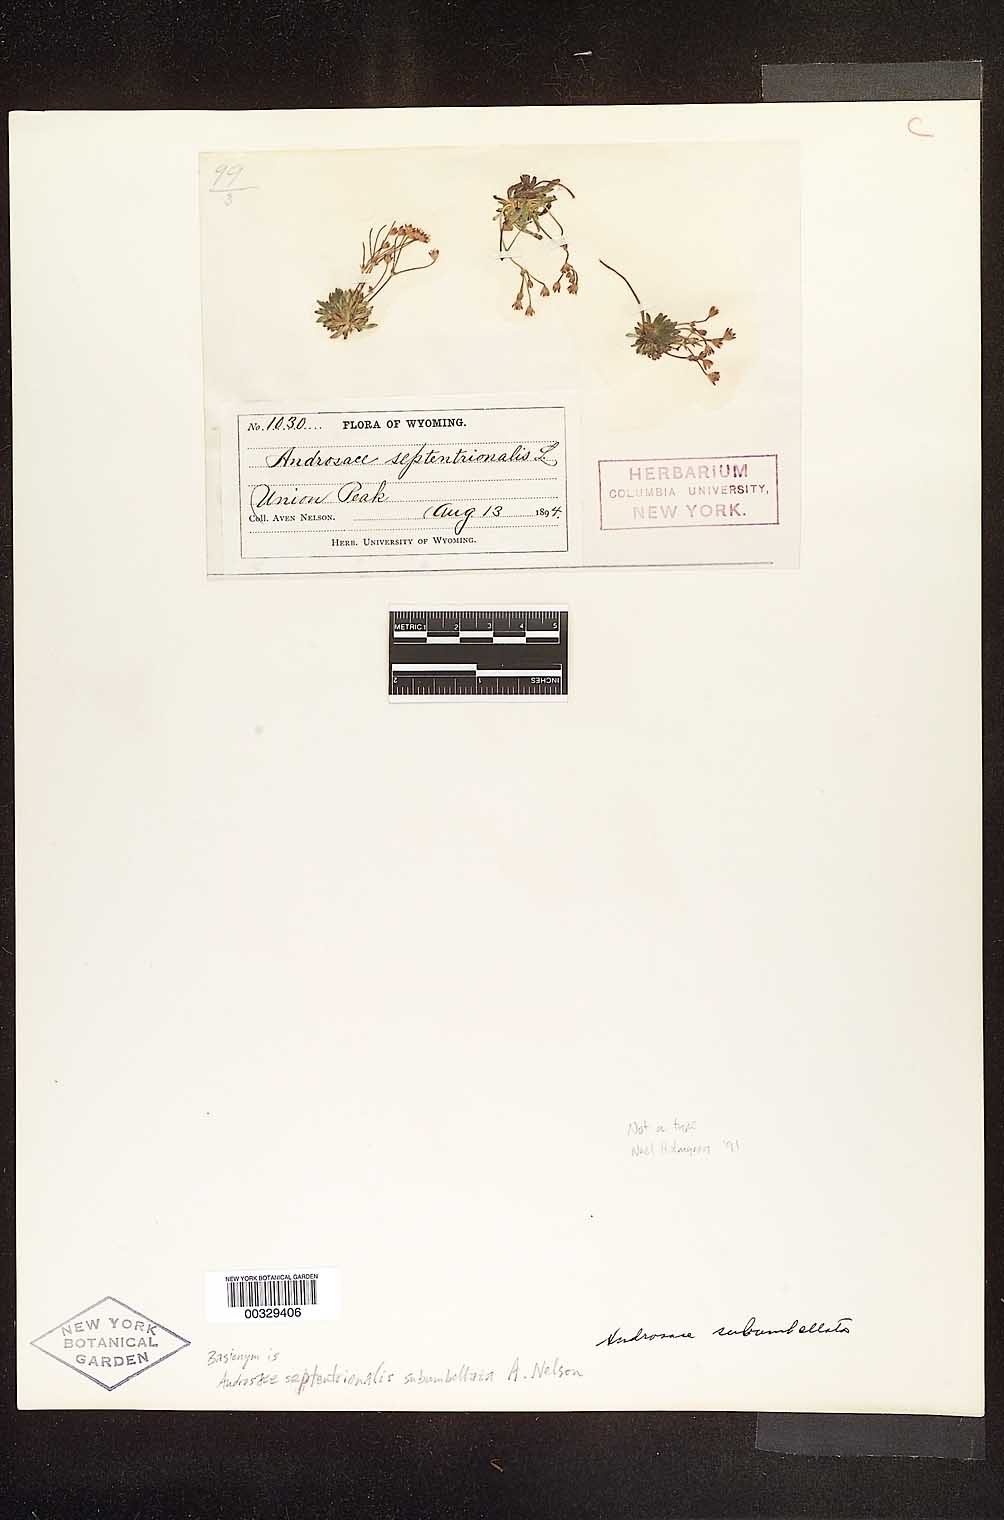 C
99
3
No. 1030.... FLORA OF WYOMING.
Androsace septentrionalis L.
Union Peak
Coll. AVEN NELSON. Aug 13 1894.
HERB. UNIVERSITY OF WYOMING.
HERBARIUM
COLUMBIA UNIVERSITY,
NEW YORK.
METRIC 1 2 3 4 5
2 1 INCHES
Not a type
Noel Holmgren '91
NEW YORK BOTANICAL GARDEN
00329406
NEW YORK
BOTANICAL
GARDEN
Androsace subumbellata
Basionym is
Androsace septentrionalis subumbellata A. Nelson